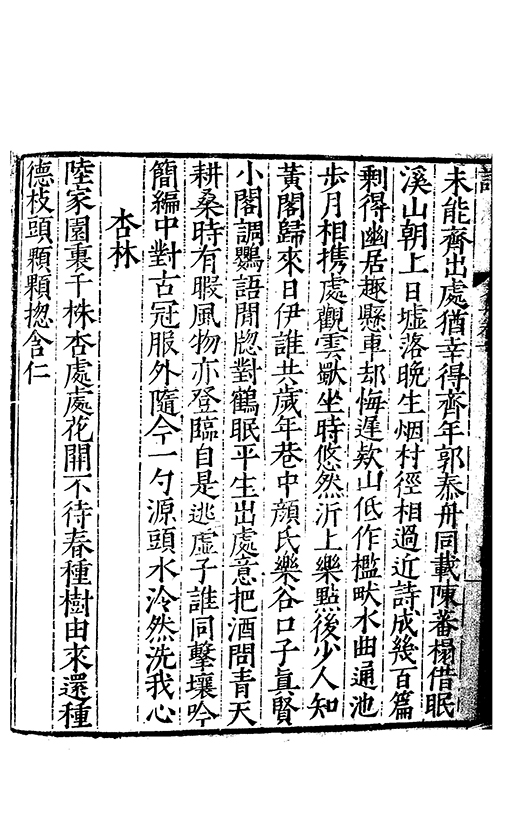 未能齊出處猶幸得齊年郭泰舟同載陳蕃榻借眠
溪山朝上日墟落晚生烟村徑相過近詩成幾百篇
剩得幽居趣懸車却悔遲欹山低作檻畎水曲通池
步月相携處觀雲獨坐時悠然沂上樂點後少人知
黃閣歸來日伊誰共歲年巷中顏氏樂谷口子真賢
小閣調鸚語閒牎對鶴眠平生出處意把酒問青天
耕桑時有暇風物亦登臨自是逃虛子誰同擊壤吟
簡編中對古冠服外隨今一勺源頭水泠然洗我心
杏林
陸家園裏千株杏處處花開不待春種樹由來還種
德枝頭顆顆揔含仁